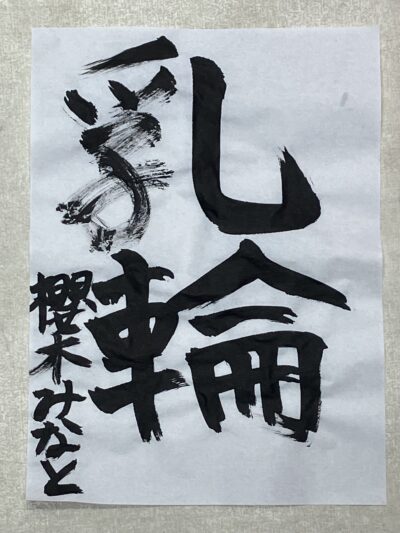 乳輪
櫻木みなと